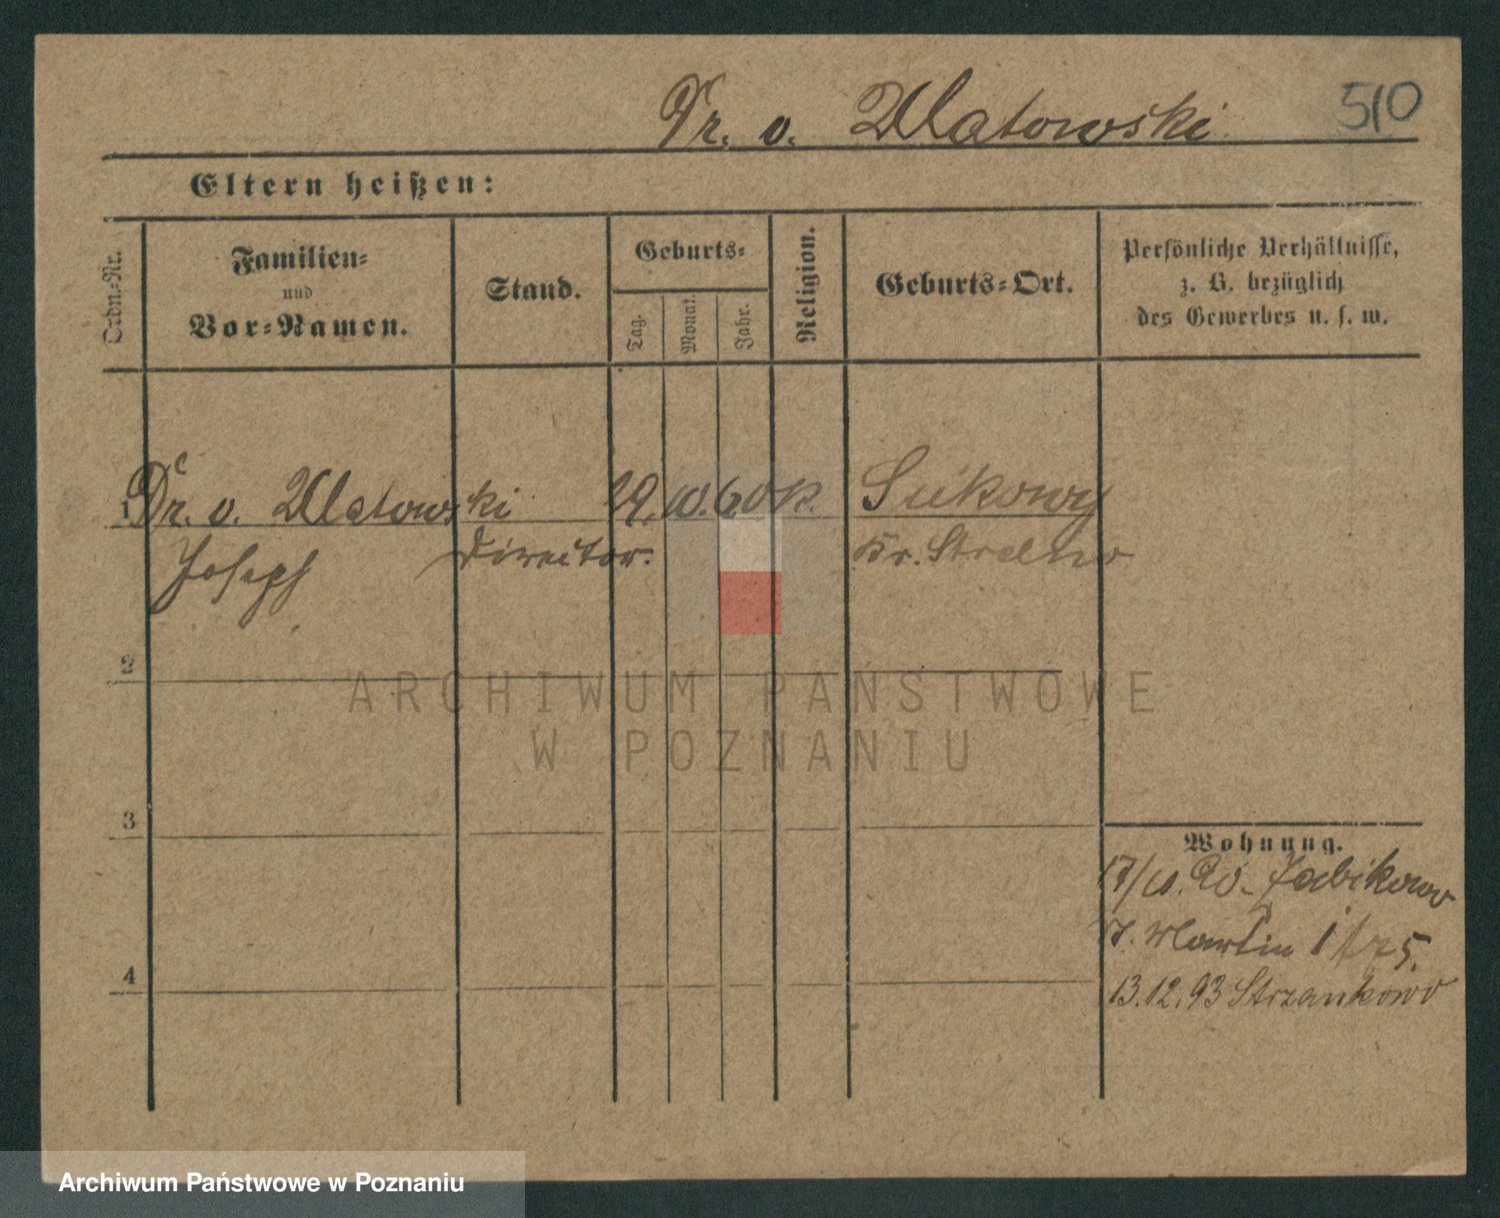 Dr. v. Mlatowski 510
Eltern heißen:
Ordn.=Nr.
Familien=
und
Vor=Namen.
Stand.
Geburts=
Tag.
Monat.
Jahr.
Religion.
Geburts=Ort.
Persönliche Verhältnisse,
z. B. bezüglich
des Gewerbes u. s. w.
1 Dr. v. Mlatowski 29. 10. 60 K. Sukowy
Joseph Director. Kr. Strelno
2
ARCHIWUM PAŃSTWOWE
W POZNANIU
3
Wohnung.
17/10. Żabikowo
Martin
4
13.12.93 Strzankowo
Archiwum Państwowe w Poznaniu